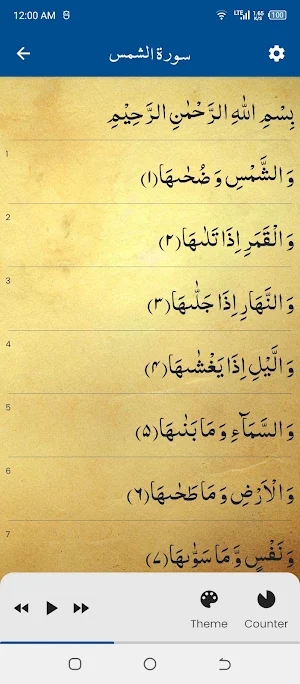 12:00 AM LTE 1.65 K/S 100
سورة الشمس
بِسْمِ اللّٰهِ الرَّحْمٰنِ الرَّحِيْمِ
1
وَالشَّمْسِ وَضُحٰىهَا(۱)
2
وَالْقَمَرِ اِذَا تَلٰىهَا(۲)
3
وَالنَّهَارِ اِذَا جَلّٰىهَا(۳)
4
وَالَّيْلِ اِذَا يَغْشٰىهَا(۴)
5
وَالسَّمَآءِ وَمَا بَنٰىهَا(۵)
6
وَالْاَرْضِ وَمَا طَحٰىهَا(۶)
7
وَنَفْسٍ وَّمَا سَوّٰىهَا(۷)
Theme Counter